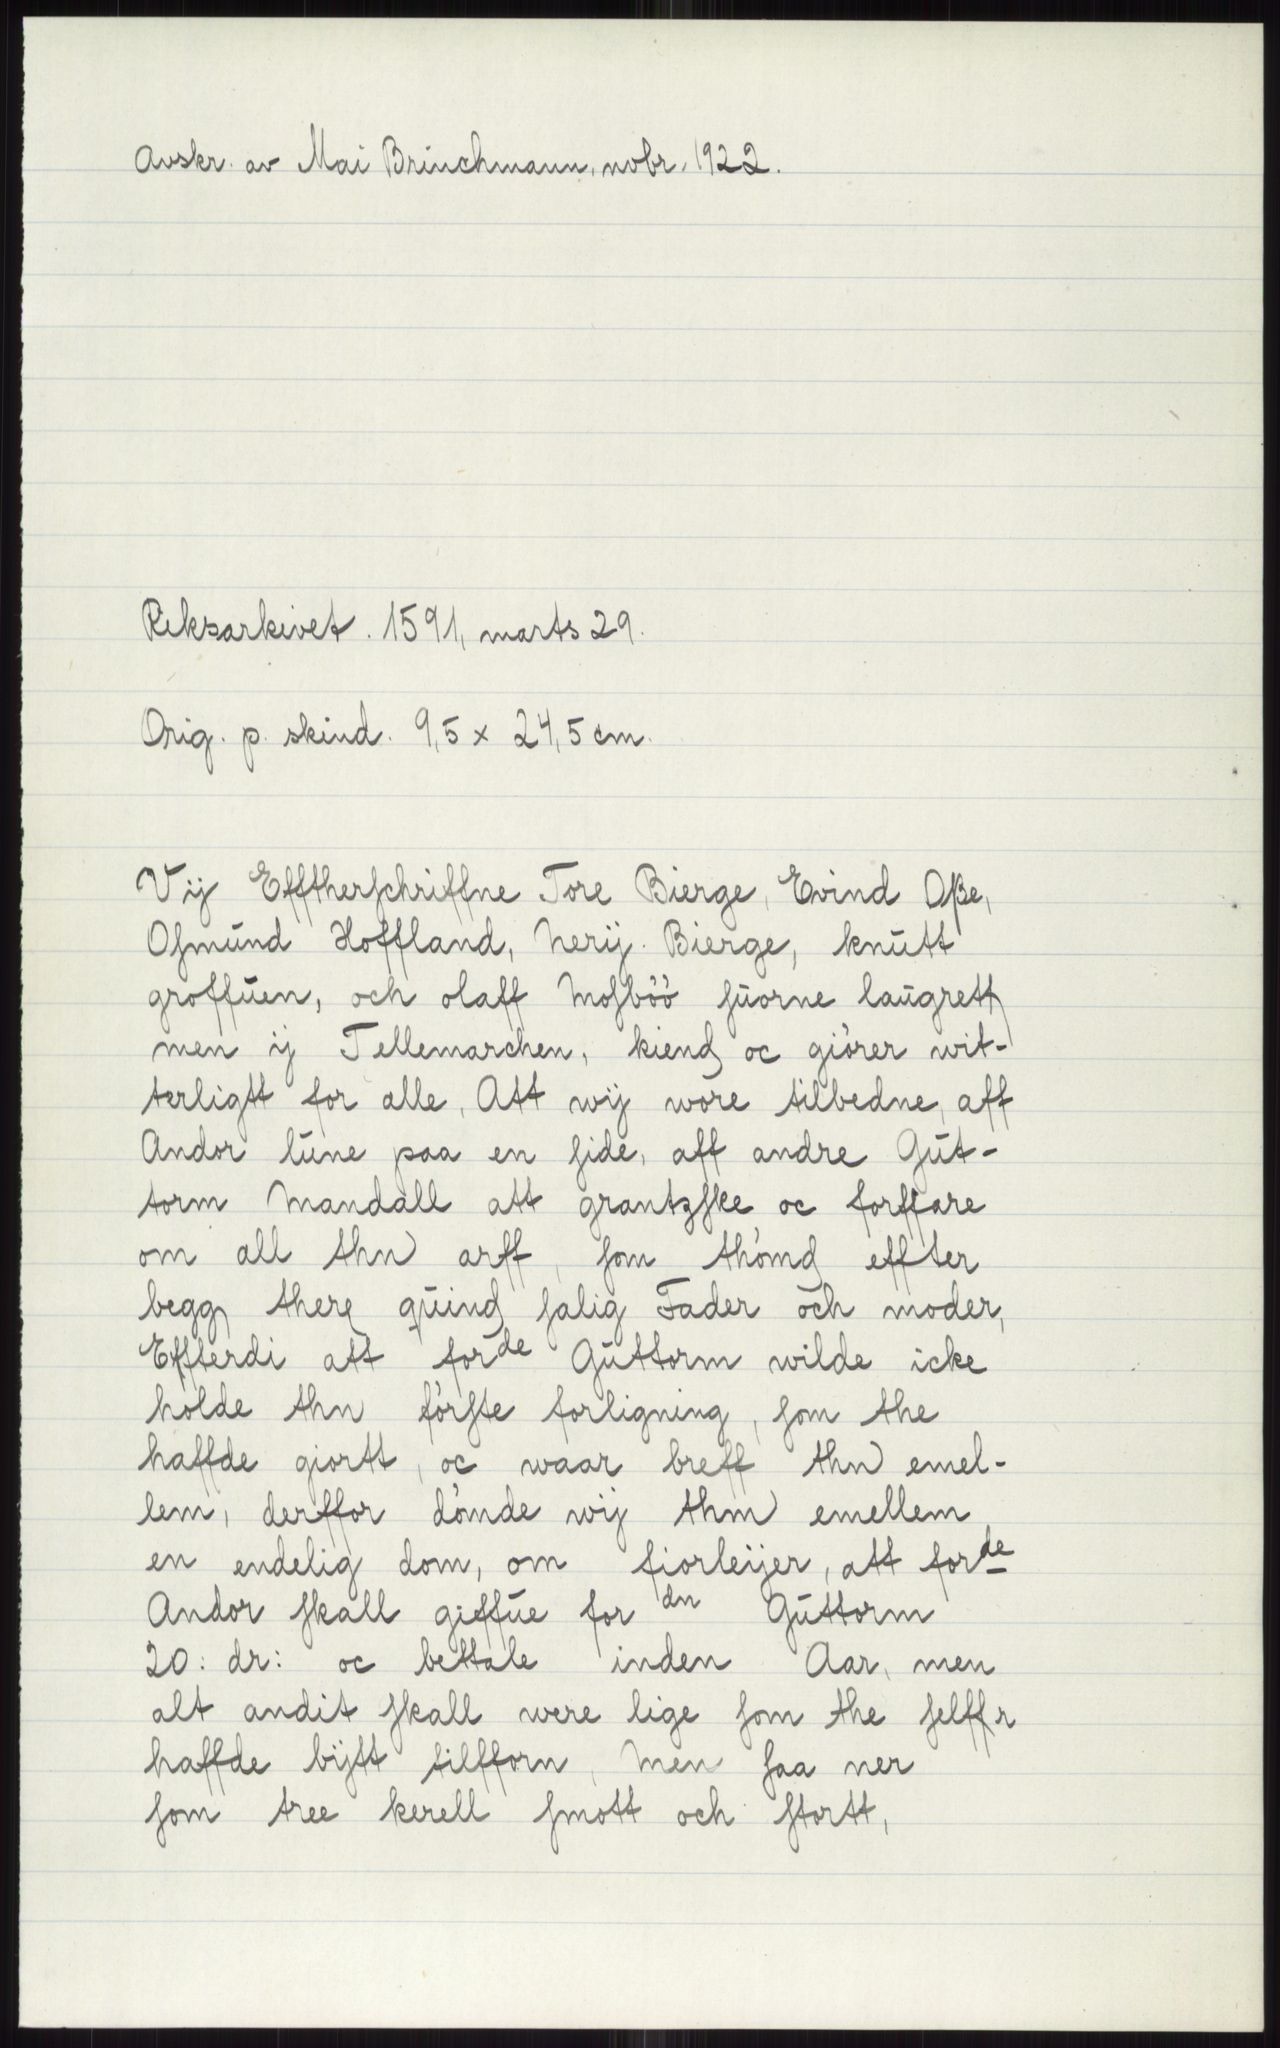 Avskr. av Mai Brinchmann, nobr. 1922.
Riksarkivet. 1591, marts 29.
Orig. p. skind. 9,5 x 24,5 cm.
Vij Efftherſchriffne Tore Bierge, Evind Oße,
Oſmund Hoffland, Nerij Bierge, knutt
groffuen, och olaff Moſböö ſuorne laugrett
men ij Tellemarchen, kiend oc giörer wit-
terligtt for alle, Att wij wore tilbedne, aff
Andor lune paa en ſide, aff andre Gut-
torm Mandall att grantzſke oc forffare
om all thn arff, ſom thömd effter
begg there quind ſalig Fader och moder,
Effterdi att forde Guttorm wilde icke
holde thn förſte forligning, ſom the
haffde giortt, oc waar breff thn emel-
lem, derffor dömde wij thm emellem
en endelig dom, om fiorleijer, att forde
Andor ſkall giffue for dn Guttorm
20: dr: oc bettale inden Aar, men
alt andit ſkall were lige ſom the ſelffr
haffde bijtt tilfforn, Men ſaa ner
ſom tree kerell ſmott och ſtortt,